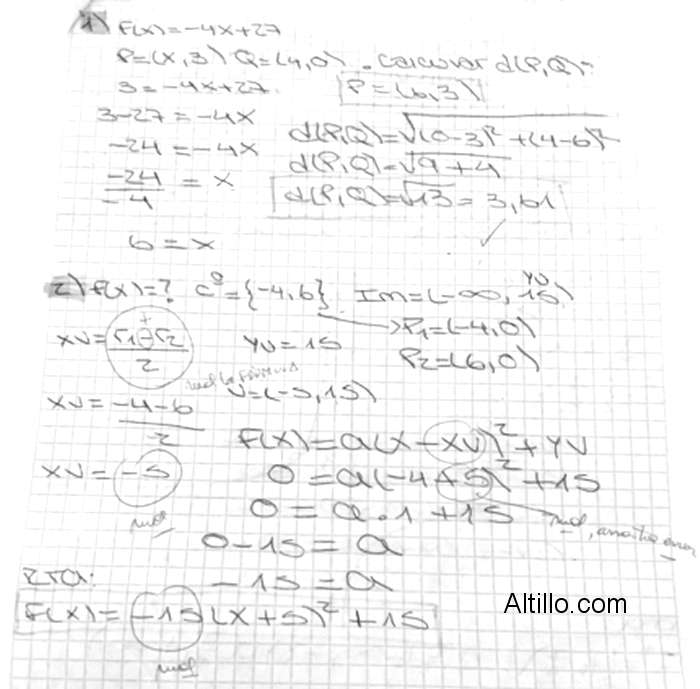 1) F(x)=-4x+27
P=(x,3) Q=(4,0). Calcular d(P,Q)=
3=-4x+27. P=(6,3)
3-27=-4x
-24=-4x
-24/-4 = x
6=x
d(P,Q)=√(0-3)²+(4-6)²
d(P,Q)=√9+4
d(P,Q)=√13=3,61
2) f(x)=? C⁰={-4,6} Im=(-∞, 15)
yv
→P₁=(-4,0)
P₂=(6,0)
xv= r₁-r₂/2
+
yv=15
mal la fórmula
V=(-5,15)
xv= -4-6/2
xv= -5
mal
F(x)=a(x-xv)²+yv
0=a(-4+5)²+15
0=a.1+15
mal, arrastra error
0-15=a
-15=a
Rta:
F(x)=-15(x+5)²+15
mal
Altillo.com